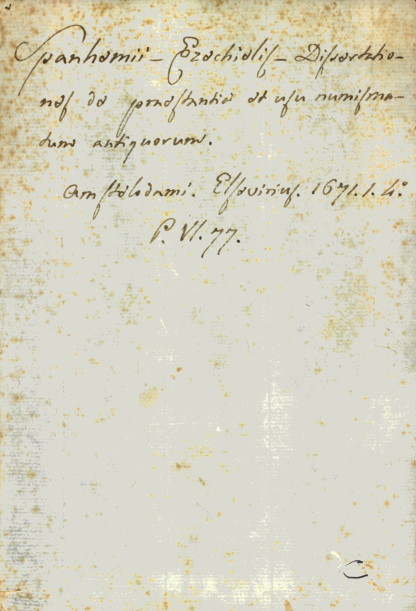 Spanhemii - Ezechielis - Dissertatio-
nes de praestantia et usu numisma-
tum antiquorum.
Amstelodami. Elsevirius. 1671. 1. 4°
P. VI. 77.